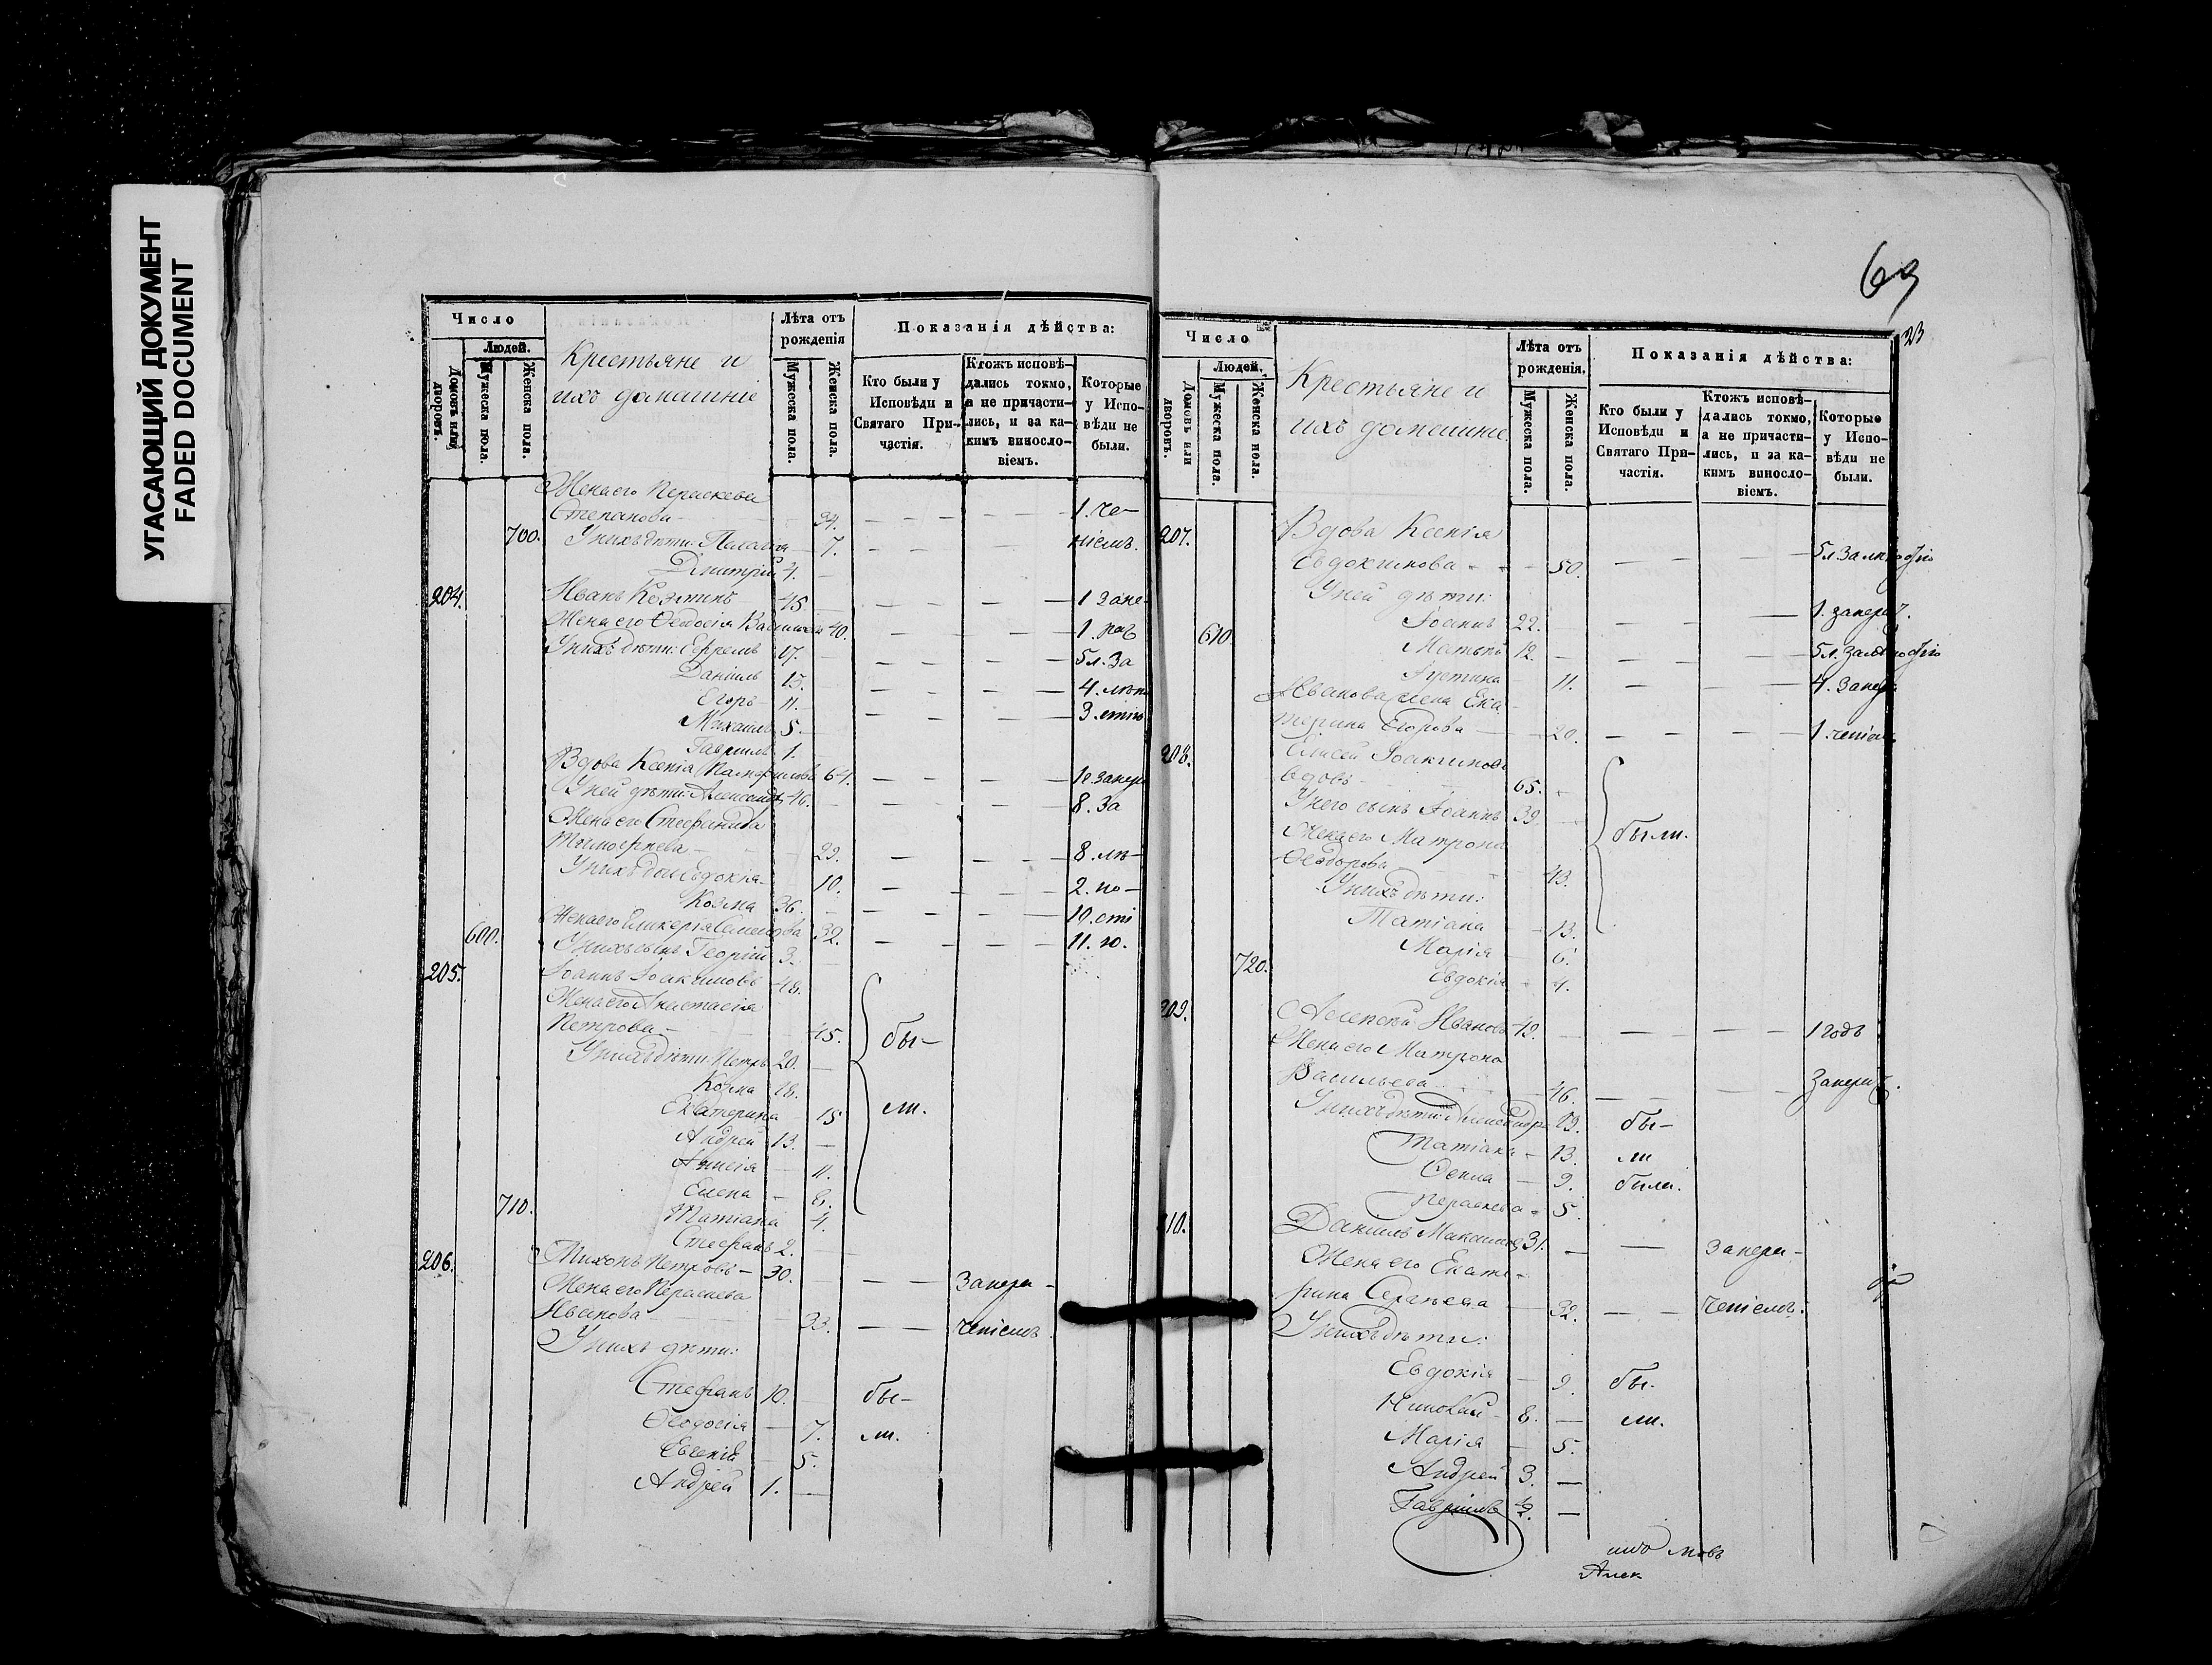 УГАСАЮЩИЙ ДОКУМЕНТ
FADED DOCUMENT
Число
Людей.
Домовъ или дворовъ.
Мужеска пола.
Женска пола.
Крестьяне и
ихъ домашніе
Лѣта отъ рожденія
Мужеска пола.
Женска пола.
Показанія дѣйства:
Кто были у Исповѣди и Святаго Причастія.
Ктожъ исповѣдались токмо, а не причастились, и за какимъ винословіемъ.
Которые у Исповѣди не были.
Жена его Параскева
Степанова 34. 1. че-
700. У нихъ дѣти: Пелагія 7. ніемъ.
Дмитрій 4.
204. Иванъ Козминъ 45. 1 Зане-
Жена его Ѳеодосія Васильева 40. 1. рач
У нихъ дѣти: Ефремъ 17. 5 л. За
Даніилъ 15. 4. лѣн
Егоръ 11. 3. стію
Михаилъ 5.
Гавріилъ 1.
Вдова Ксенія 64. 10. занера
У ней дѣти: Александръ 46. 8. За
Жена его Стефанида
Тимофеева 29. 8. лѣ-
У нихъ дочь Евдокія 10. 2. но-
Козма 36. 10. сті
Жена его Гликерія Семенова 32. 11. ю.
600. У нихъ сынъ Георгій 3.
205. Іоаннъ Іоакимовъ 48.
Жена его Анастасія
Петрова 45. бы-
У нихъ дѣти: Петръ 20.
Козма 18.
Екатерина 15 ли.
Андрей 13.
Анисія 11.
Елена 6.
710. Татіана 4.
Стефанъ 2.
206. Тихонъ Петровъ 30. Занера-
Жена его Параскева
Иванова 33. ченіемъ
У нихъ дѣти:
Стефанъ 10. бы-
Ѳеодосія 7. ли.
Евгенія 5.
Андрей 1.
69
23
Число
Людей.
Домовъ или дворовъ.
Мужеска пола.
Женска пола.
Крестьяне и
ихъ домашніе.
Лѣта отъ рожденія.
Мужеска пола.
Женска пола.
Показанія дѣйства:
Кто были у Исповѣди и Святаго Причастія.
Ктожъ исповѣдались токмо, а не причастились, и за какимъ винословіемъ.
Которые у Исповѣди не были.
207. Вдова Ксенія
Евдокимова 50. 5 л. За лѣностію
У ней дѣти:
610. Іоаннъ 22. 1. занерач.
Матѳей 12. 5 л. За лѣностію
Іустина 11. 4. Занера
Иванова жена Ека
терина Егорова 20. 1. ченіем
208. Елисей Іоакимовъ
вдовъ 65.
У него сынъ Іоаннъ 39. были.
Жена его Матрона
Ѳеодорова 43.
У нихъ дѣти:
Татіана 13.
Марія 6.
720. Евдокія 4.
209. Алексѣй Ивановъ 42. 1 годъ
Жена его Матрона
Васильева 46. Занерач.
У нихъ дѣти: Александра 19. бы-
Татіана 13. ли
9. были.
Параскева 5.
210. Даніилъ Максимовъ 31. Занера-
Жена его Екате-
рина Сергѣева 32. ченіемъ.
У нихъ дѣти:
Евдокія 9. бы-
Николай 8. ли.
Марія 5.
Андрей 3.
Гавріилъ
Алек